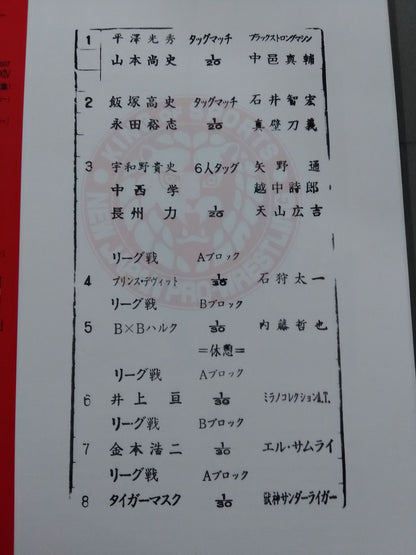 1 平澤光秀 タッグマッチ ブラックストロングマシン
山本尚史 1/20 中邑真輔
2 飯塚高史 タッグマッチ 石井智宏
永田裕志 1/20 真壁刀義
3 宇和野貴史 6人タッグ 矢野通
中西学 越中詩郎
長州力 1/20 天山広吉
リーグ戦 Aブロック
4 プリンス・デヴィット 1/30 石狩太一
リーグ戦 Bブロック
5 B×Bハルク 1/30 内藤哲也
=休憩=
リーグ戦 Aブロック
6 井上亘 1/30 ミラノコレクションA.T.
リーグ戦 Bブロック
7 金本浩二 1/30 エル・サムライ
リーグ戦 Aブロック
8 タイガーマスク 1/30 獣神サンダーライガー